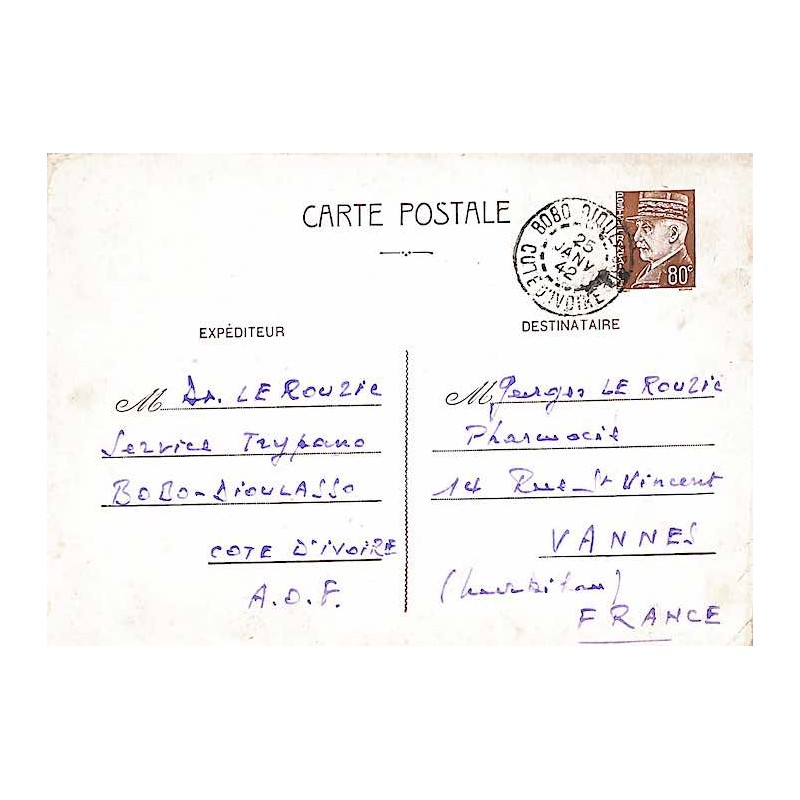 CARTE POSTALE
BOBO DIOUL
25
JANV
42
COTE D'IVOIRE
80c
EXPÉDITEUR
M Dr. LE ROUZIC
Service Trypano
BOBO-DIOULASSO
COTE D'IVOIRE
A.O.F.
DESTINATAIRE
M Georges LE ROUZIC
Pharmacie
14 Rue St Vincent
VANNES
(Morbihan)
FRANCE